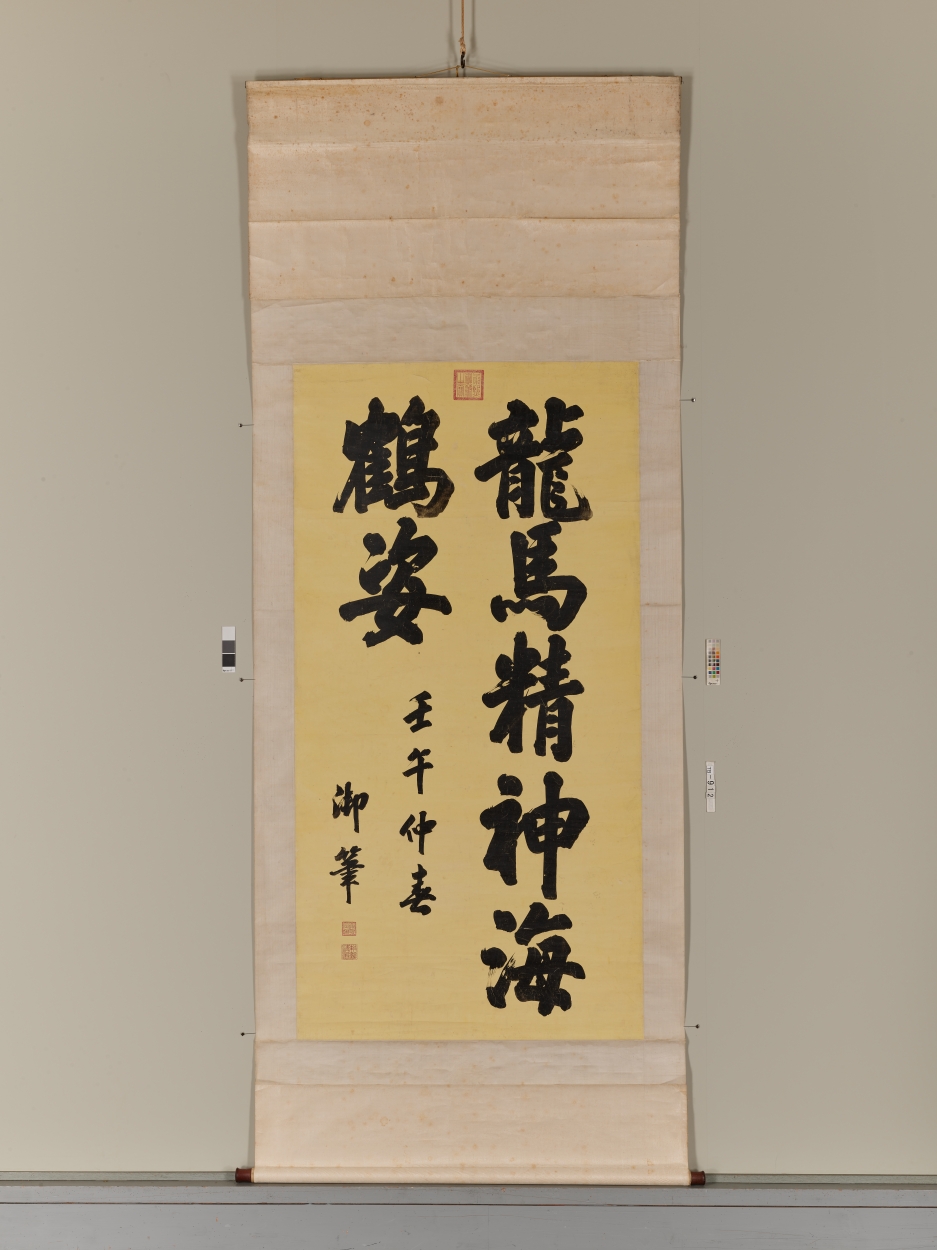 龍馬精神海
鶴姿
壬午仲春
御筆
m-912